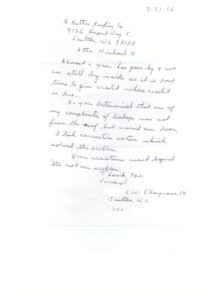 3-21-06
A Better Roofing Co
Seattle, WA 98108
Attn Michael K.
Almost a year has gone by & we
are still dry inside so it is past
time to give credit where credit
is due.
As you determined that one of
my complaints of leakage was not
from the roof but around our door,
I took corrective action which
solved the problem.
Your assistance went beyond
"Its not our problem".
Thank You
S.W.
Seattle, WA